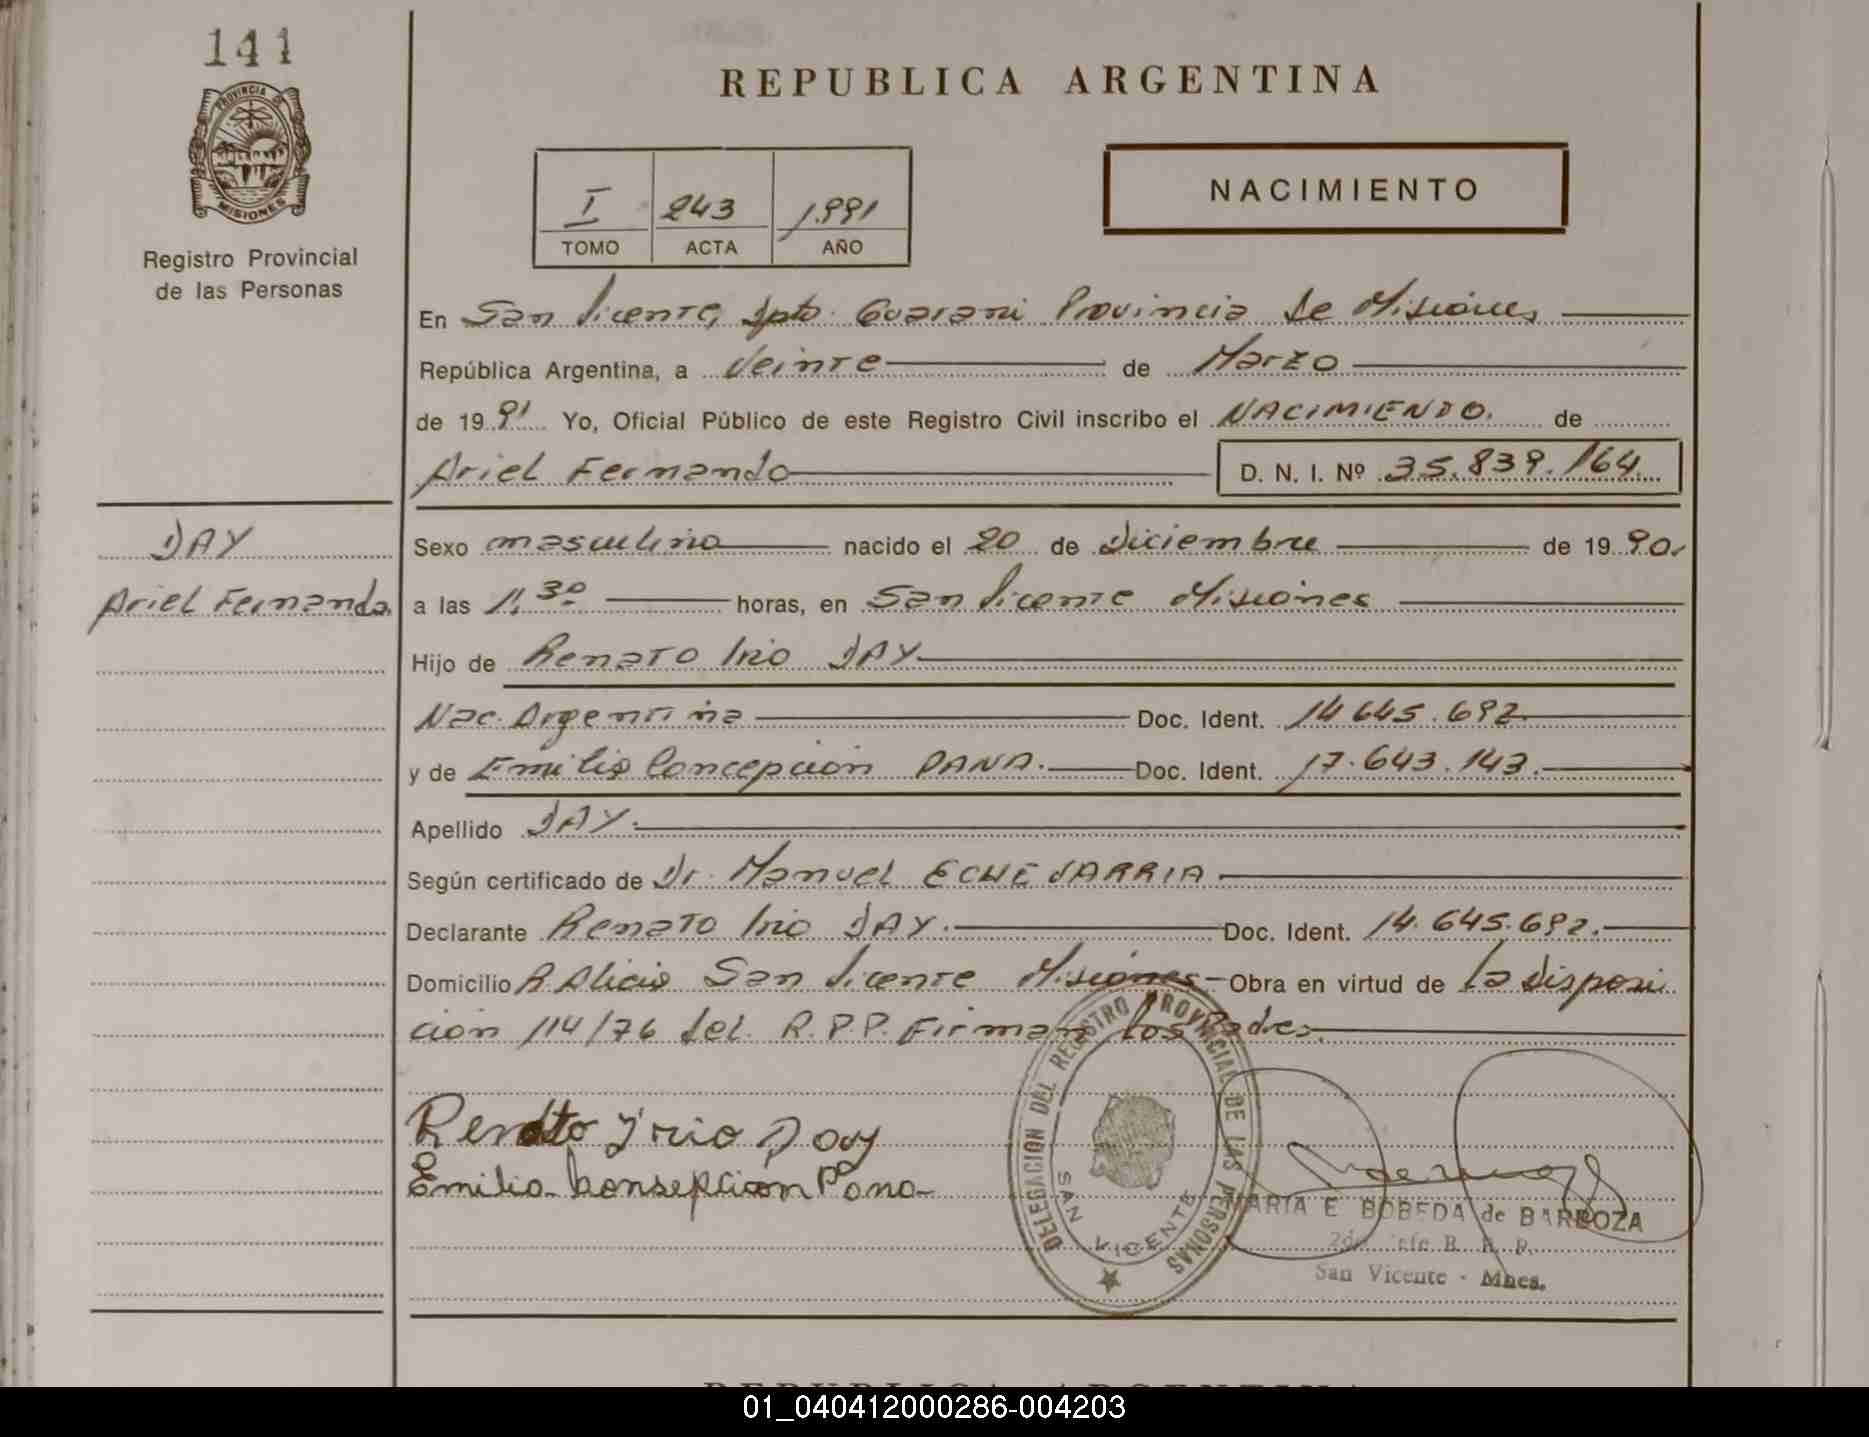 141
PROVINCIA DE
MISIONES
Registro Provincial
de las Personas
REPUBLICA ARGENTINA
I 243 1.991
TOMO ACTA AÑO
NACIMIENTO
En San Vicente, Dpto. Guarani Provincia de Misiones
República Argentina, a Veinte de Marzo
de 1991 Yo, Oficial Público de este Registro Civil inscribo el NACIMIENDO. de
Ariel Fernando D. N. I. Nº 35.839.164
DAY
Ariel Fernando.
Sexo masculino nacido el 20 de Diciembre de 1990.
a las 11,30 horas, en San Vicente Misiones
Hijo de Renato Irio DAY
Nac. Argentina Doc. Ident. 14.645.692
y de Emilia Concepción PANA. Doc. Ident. 17.643.143.
Apellido DAY.
Según certificado de Dr. Manuel ECHEVARRIA
Declarante Renato Irio DAY. Doc. Ident. 14.645.692.
Domicilio P. Alicia San Vicente Misiones Obra en virtud de la disposi
ción 114/76 del R.P.P. Firman los Padres.
Renato Yrio Day
Emilia Consepcion Pana
DELEGACION DEL REGISTRO PROVINCIAL DE LAS PERSONAS
SAN VICENTE
MARIA E BOBEDA de BARBOZA
2do Jefe R. P. P.
San Vicente - Mnes.
REPUBLICA ARGENTINA
01_040412000286-004203